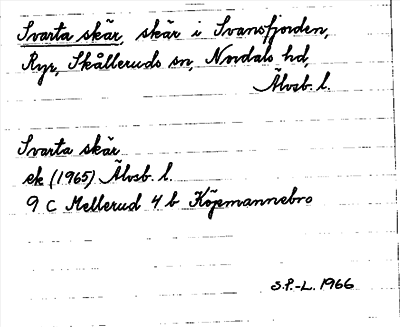 Svarta skär, skär i Svansfjorden,
Ryr, Skålleruds sn, Nordals hd,
Älvsb. l.
Svarta skär
ek (1965) Älvsb. l.
9 C Mellerud 4 b Köpmannebro
S.P.-L. 1966